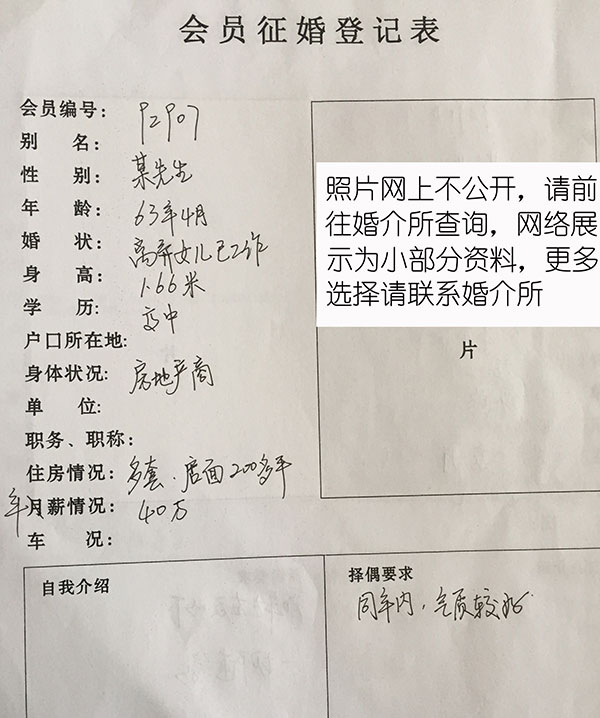 会员征婚登记表
会员编号： P2907
别 名：
性 别： 某先生
年 龄： 63年4月
婚 状： 离异女儿已工作
身 高： 1.66米
学 历： 高中
户口所在地:
身体状况: 房地产商
单 位:
职务、职称:
住房情况： 多套、店面200多平
年月薪情况： 40万
车 况：
照片网上不公开，请前
往婚介所查询，网络展
示为小部分资料，更多
选择请联系婚介所
片
自我介绍
择偶要求
同年内，气质较好